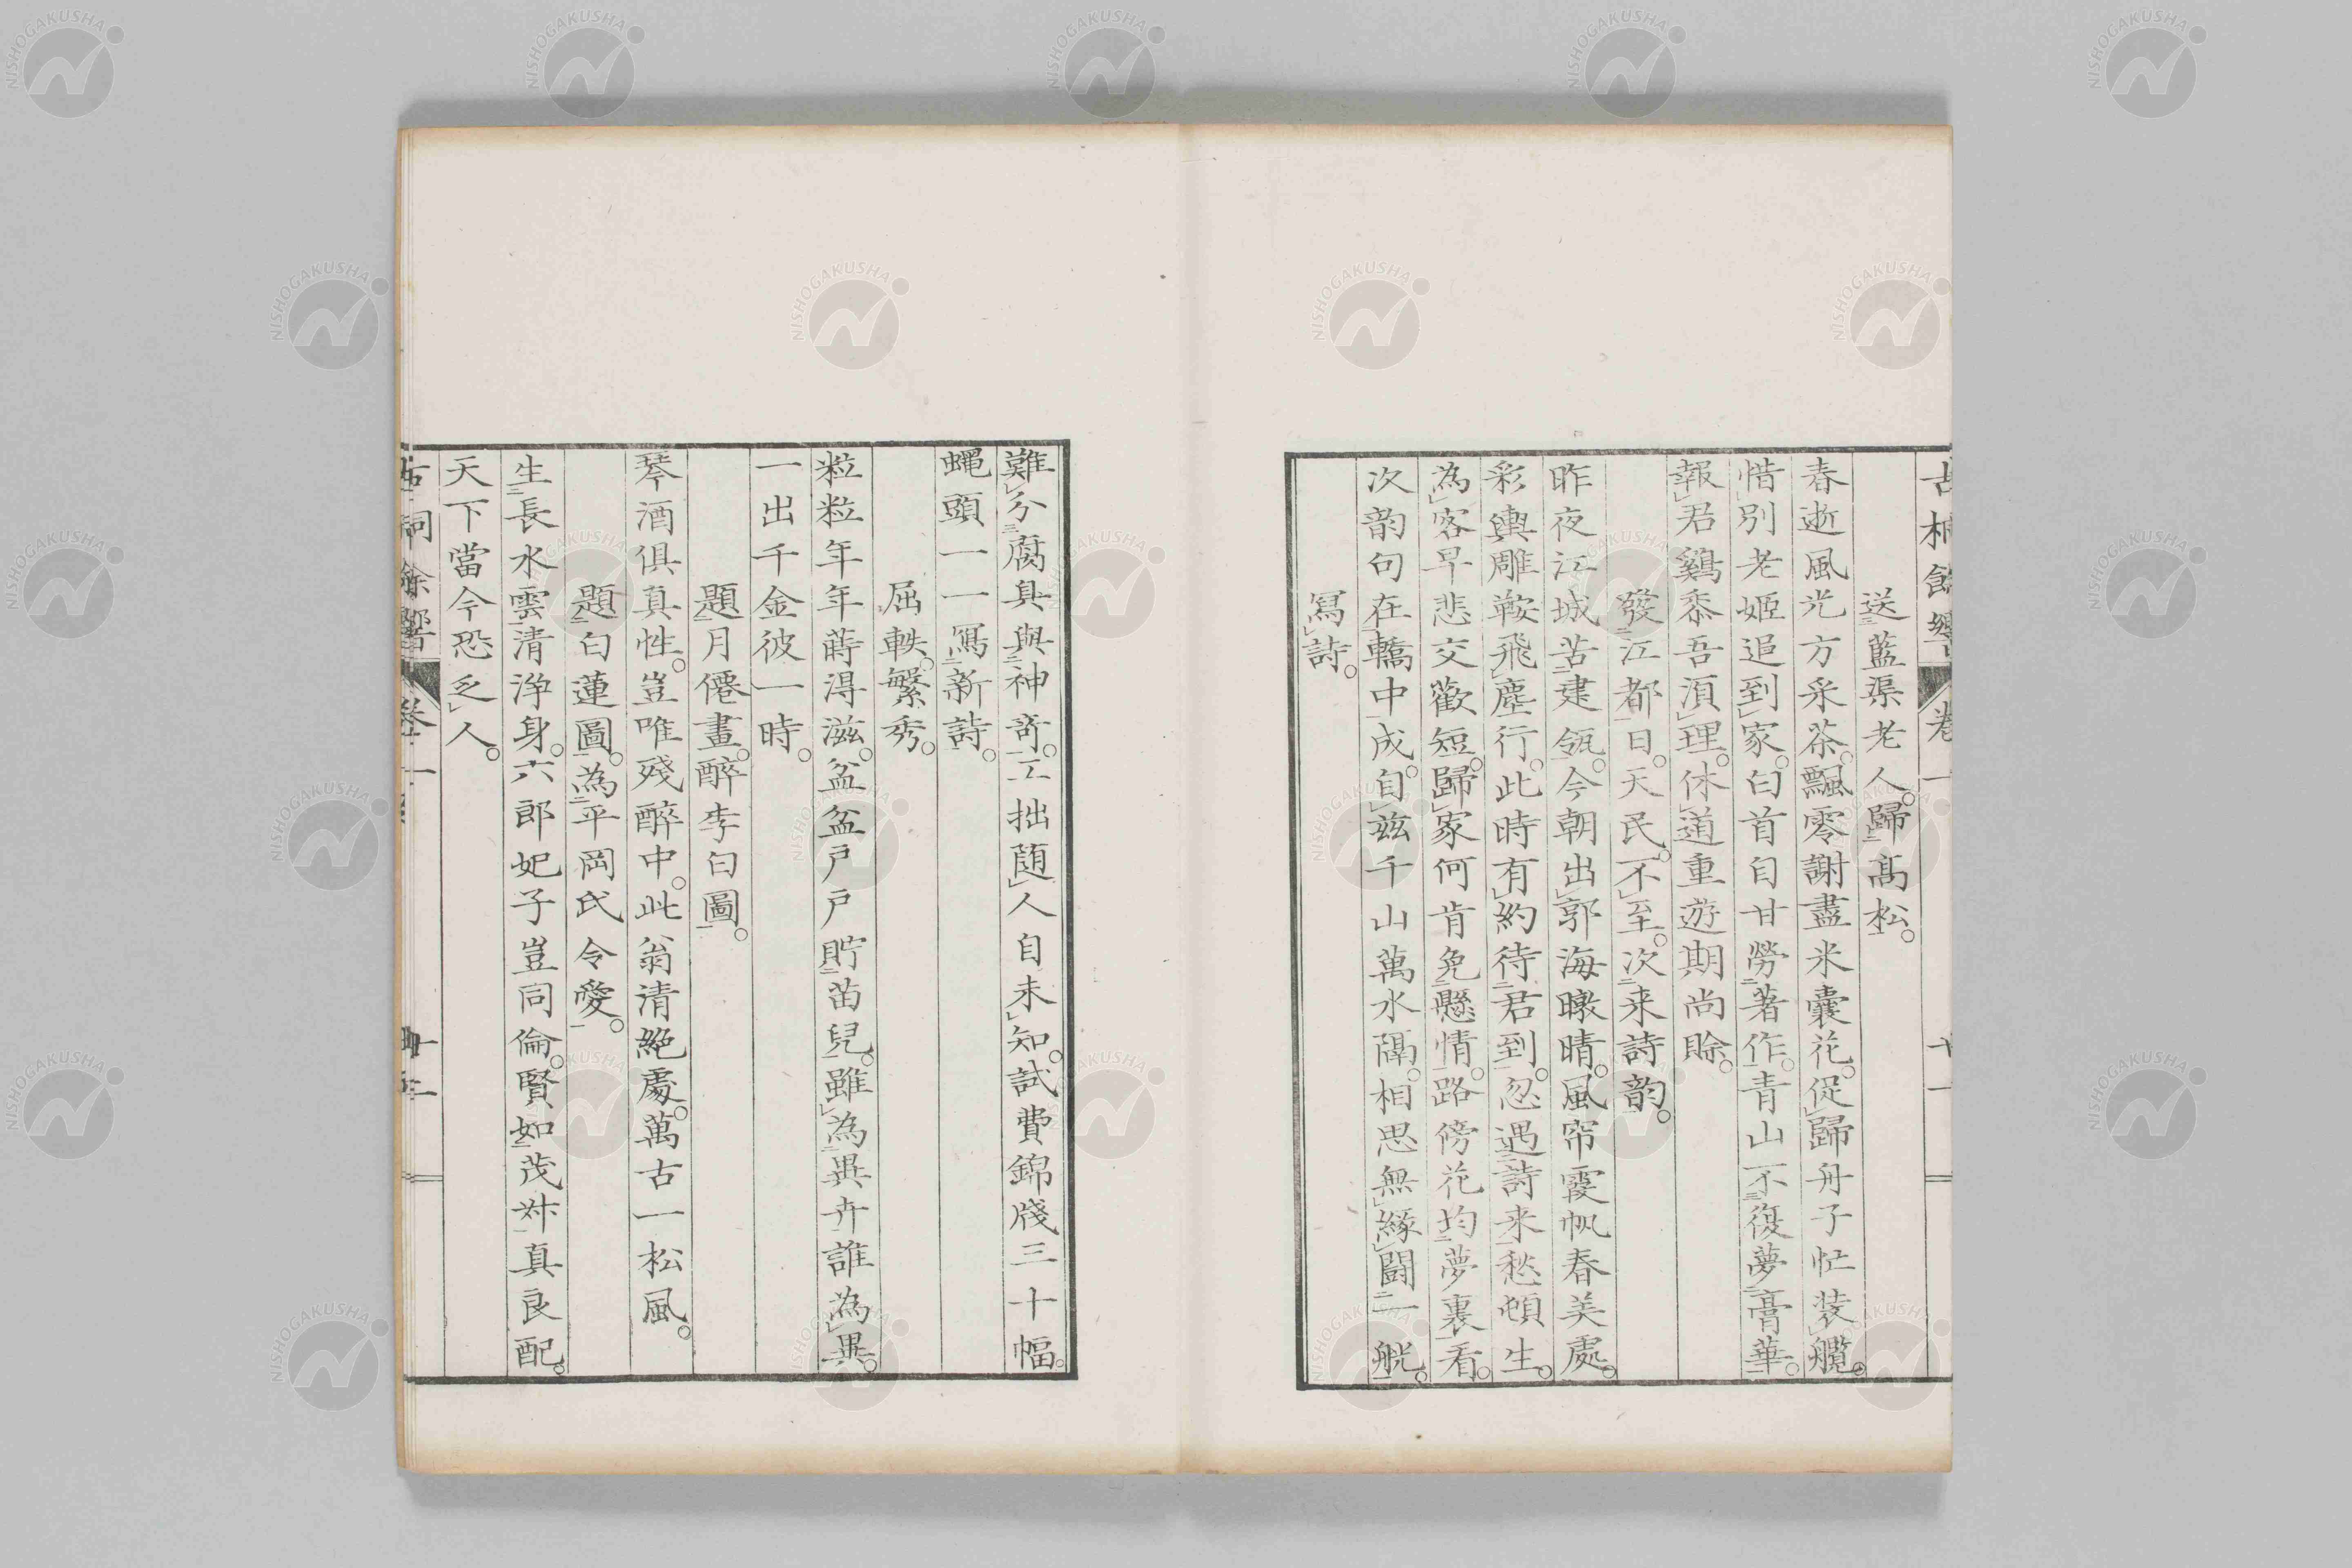 送藍渠老人。歸高松。
春逝風光方采茶。飄零謝盡米囊花。促歸舟子忙裝艦。
惜別老姬追到家。白首自甘勞著作。青山不復夢膏華。
報君鷄黍吾湏理。休道重遊期尚賒。
發江都日。天民。不至。次来詩韵。
昨夜江城苦建瓴。今朝出郭海暾晴。風帘霞帆春美處。
彩輿雕鞍飛塵行。此時有約待君到。忽遇詩来愁頓生。
為客早悲交歡短。歸家何肯免懸情。路傍花均夢裏看。
次韵句在轎中成。自茲千山萬水隔。相思無緣鬪一觥。
冩詩。
難分腐臭與神竒。工拙随人自未知。試費錦牋三十幅。
蝿頭一一冩新詩。
屈軼繁秀。
粒粒年年蒔淂滋。盆盆戸戸貯苗兒。雖為異卉誰為異。
一出千金彼一時。
題月僊畫。醉李白圖。
琴酒俱真性。豈唯殘醉中。此翁清絶處。萬古一松風。
題白蓮圖。為平岡氏令愛。
生長水雲清淨身。六郎妃子豈同倫。賢如茂叔真良配。
天下當今恐乏人。
NISHOGAKUSHA